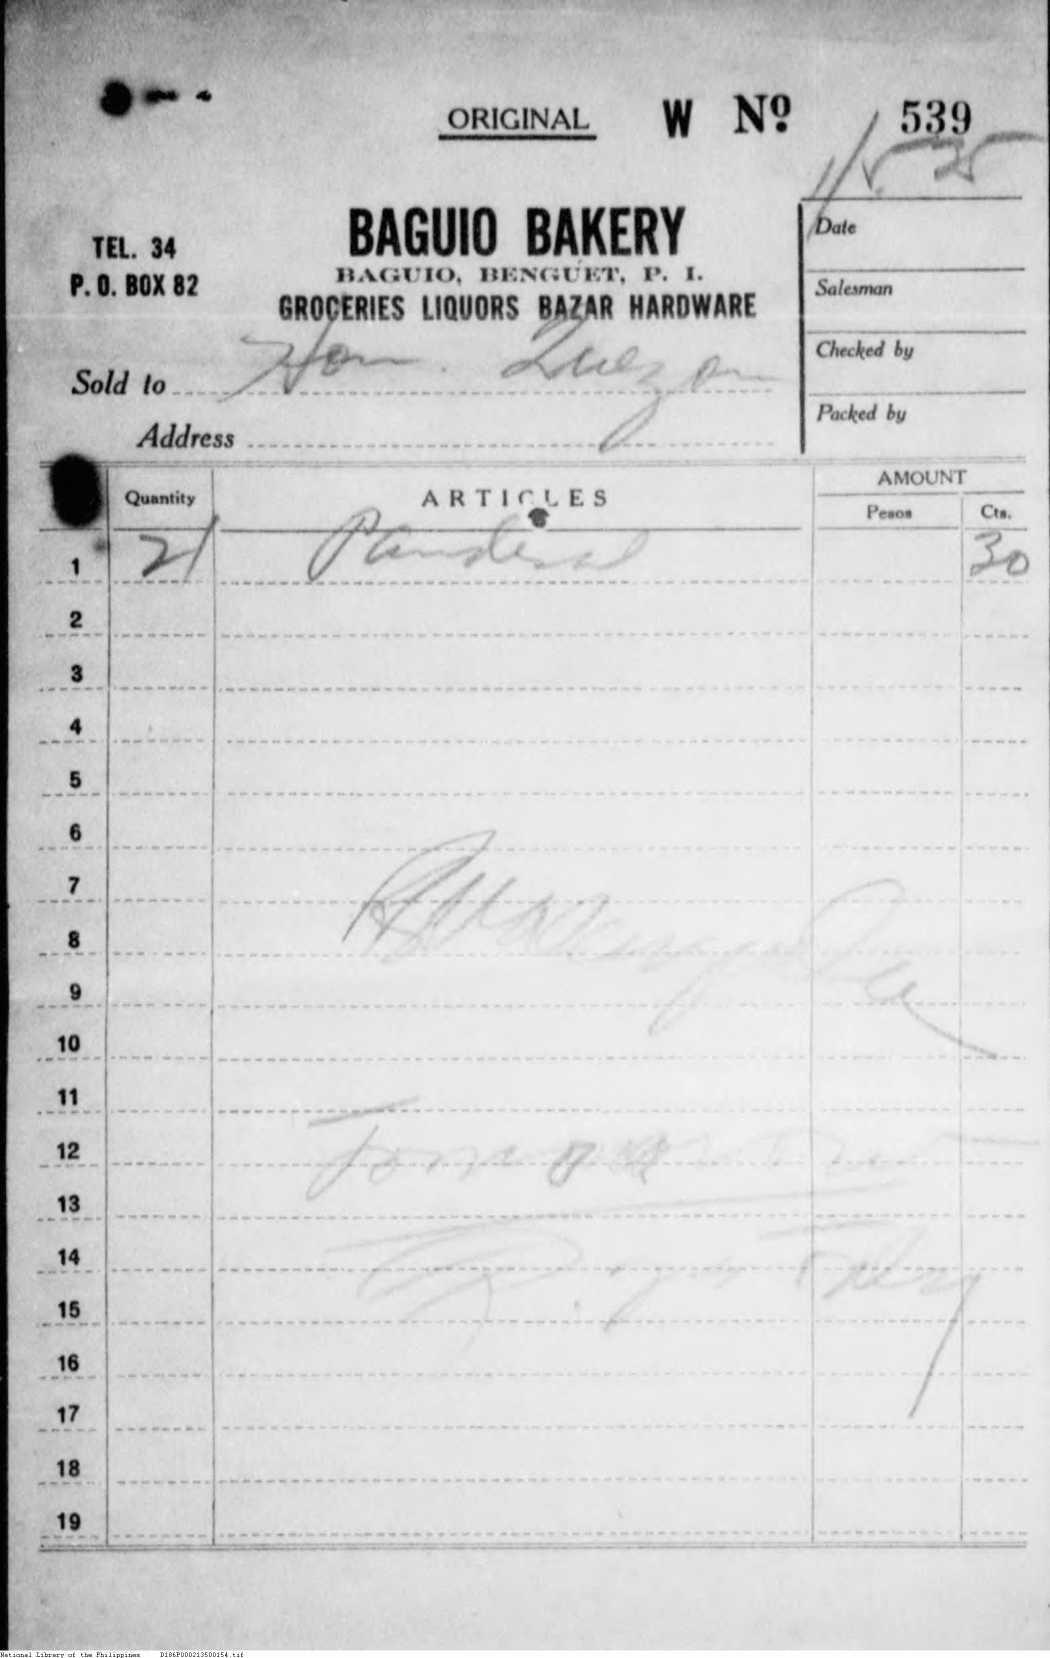 ORIGINAL W Nº 539
TEL. 34
P. O. BOX 82
BAGUIO BAKERY
BAGUIO, BENGUET, P. I.
GROCERIES LIQUORS BAZAR HARDWARE
Date
Salesman
Checked by
Packed by
Sold to Hon. Quezon
Address
Quantity ARTICLES AMOUNT
Pesos Cts.
1 21 Pandesal 30
2
3
4
5
6
7
8
9
10
11
12
13
14
15
16
17
18
19
National Library of the Philippines D186P000213500154.tif